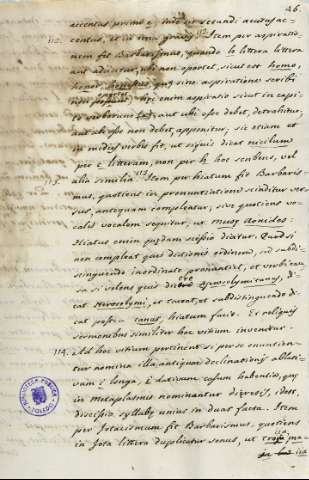 26.
accentus primo e, inde in secundi acutus ac-
112. centus, et in ima gravis. Item per aspiratio-
nem fit Barbarismus, quando h littera littera
ant adicitur, ubi non oportet, sicut est homo,
honor, quę sine aspiratione scribi
non
oportet
hęc enim aspiratio sicut in capi-
te verborum aut ubi esse debet, detrahitur,
aut ubi esse non debet, apponitur, sic etiam et
in medijs verbis fit, ut siquis dicat nicilum
per c litteram, non per h hoc scribens, vel
113. alia similia. 113 Item per hiatum fit Barbaris-
mus, quotiens in pronuntiatione scinditur ver-
sus, antequam compleatur, sive quotiens vo-
calis vocalem sequitur, ut Musę Aonides.
Hiatus enim quędam scissio dicitur. Quod si
non compleat quis dictionis ordinem, sed subdi-
stinguendo inordinate pronuntiet, et verbi cau-
sa si volens quis dicere
di-
cat Hierosolymi, et tacet, et subdistinguendo di-
cat postea canus, hiatum facit. Et reliquis
sermonibus similiter hoc vitium invenitur.
114. Ad hoc vitium pertinent si per se enuntian-
tur nomina illa antiquae declinationis ablati-
vum e longa, E dativum casum habentia, quę
in Metaplasmis nominantur dięresis, idest,
discissio syllabę unius in duas facta. Item
per Iotacismum fit Barbarismus, quotiens
in Iota littera duplicatur sonus, ut
BIBLIOTECA PUBLICA
TOLEDO